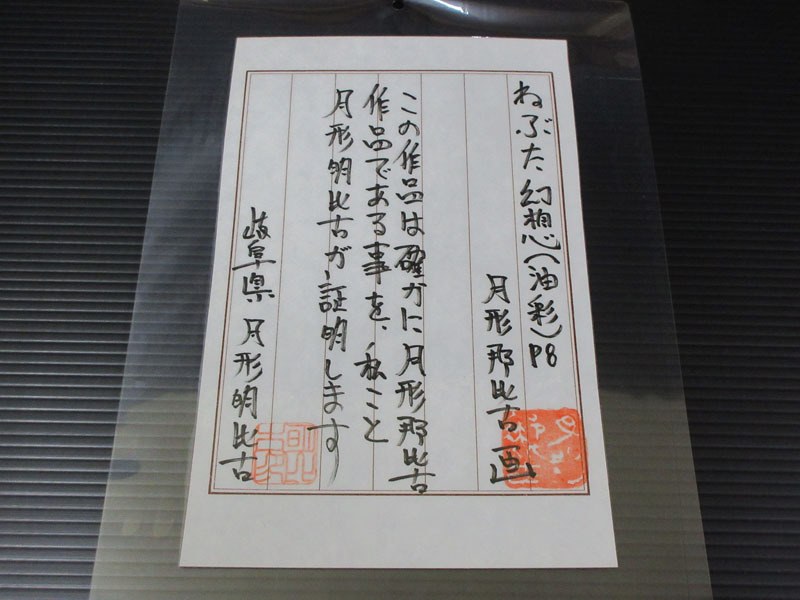 ねぶた幻想(油彩)P8
月形那比古画
この作品は確かに月形那比古
作品である事を、私こと
月形明比古が証明します
岐阜県 月形明比古